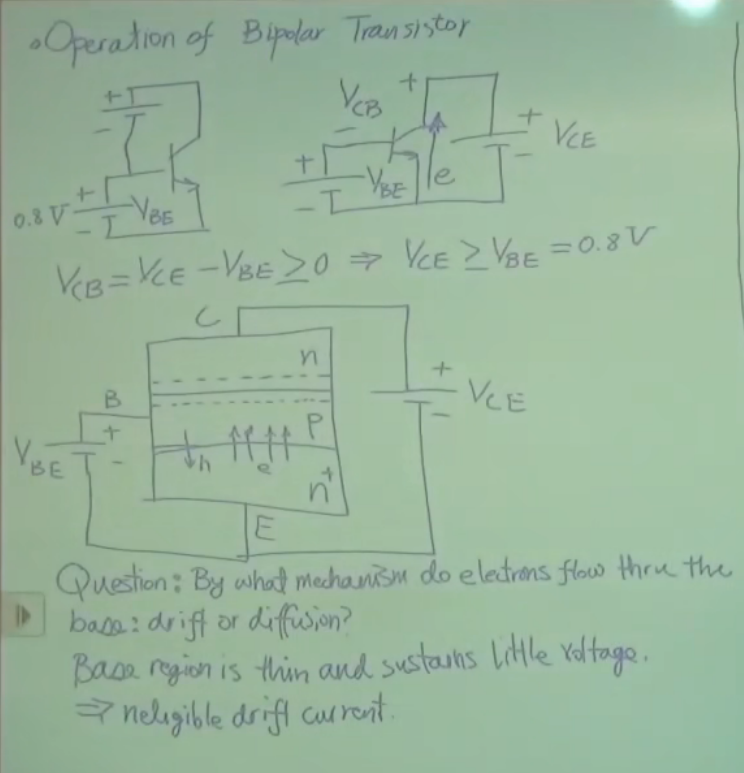 • Operation of Bipolar Transistor
+
-
+
0.8 V
-
VBE
VCB
+
-
+
-
VBE
e
+
-
VCE
VCB = VCE - VBE ≥ 0 ⇒ VCE ≥ VBE = 0.8 V
C
n
B
P
h
e
n+
E
VBE
+
-
+
-
VCE
Question: By what mechanism do electrons flow thru the
base: drift or diffusion?
Base region is thin and sustains little voltage.
⇒ neligible drift current.